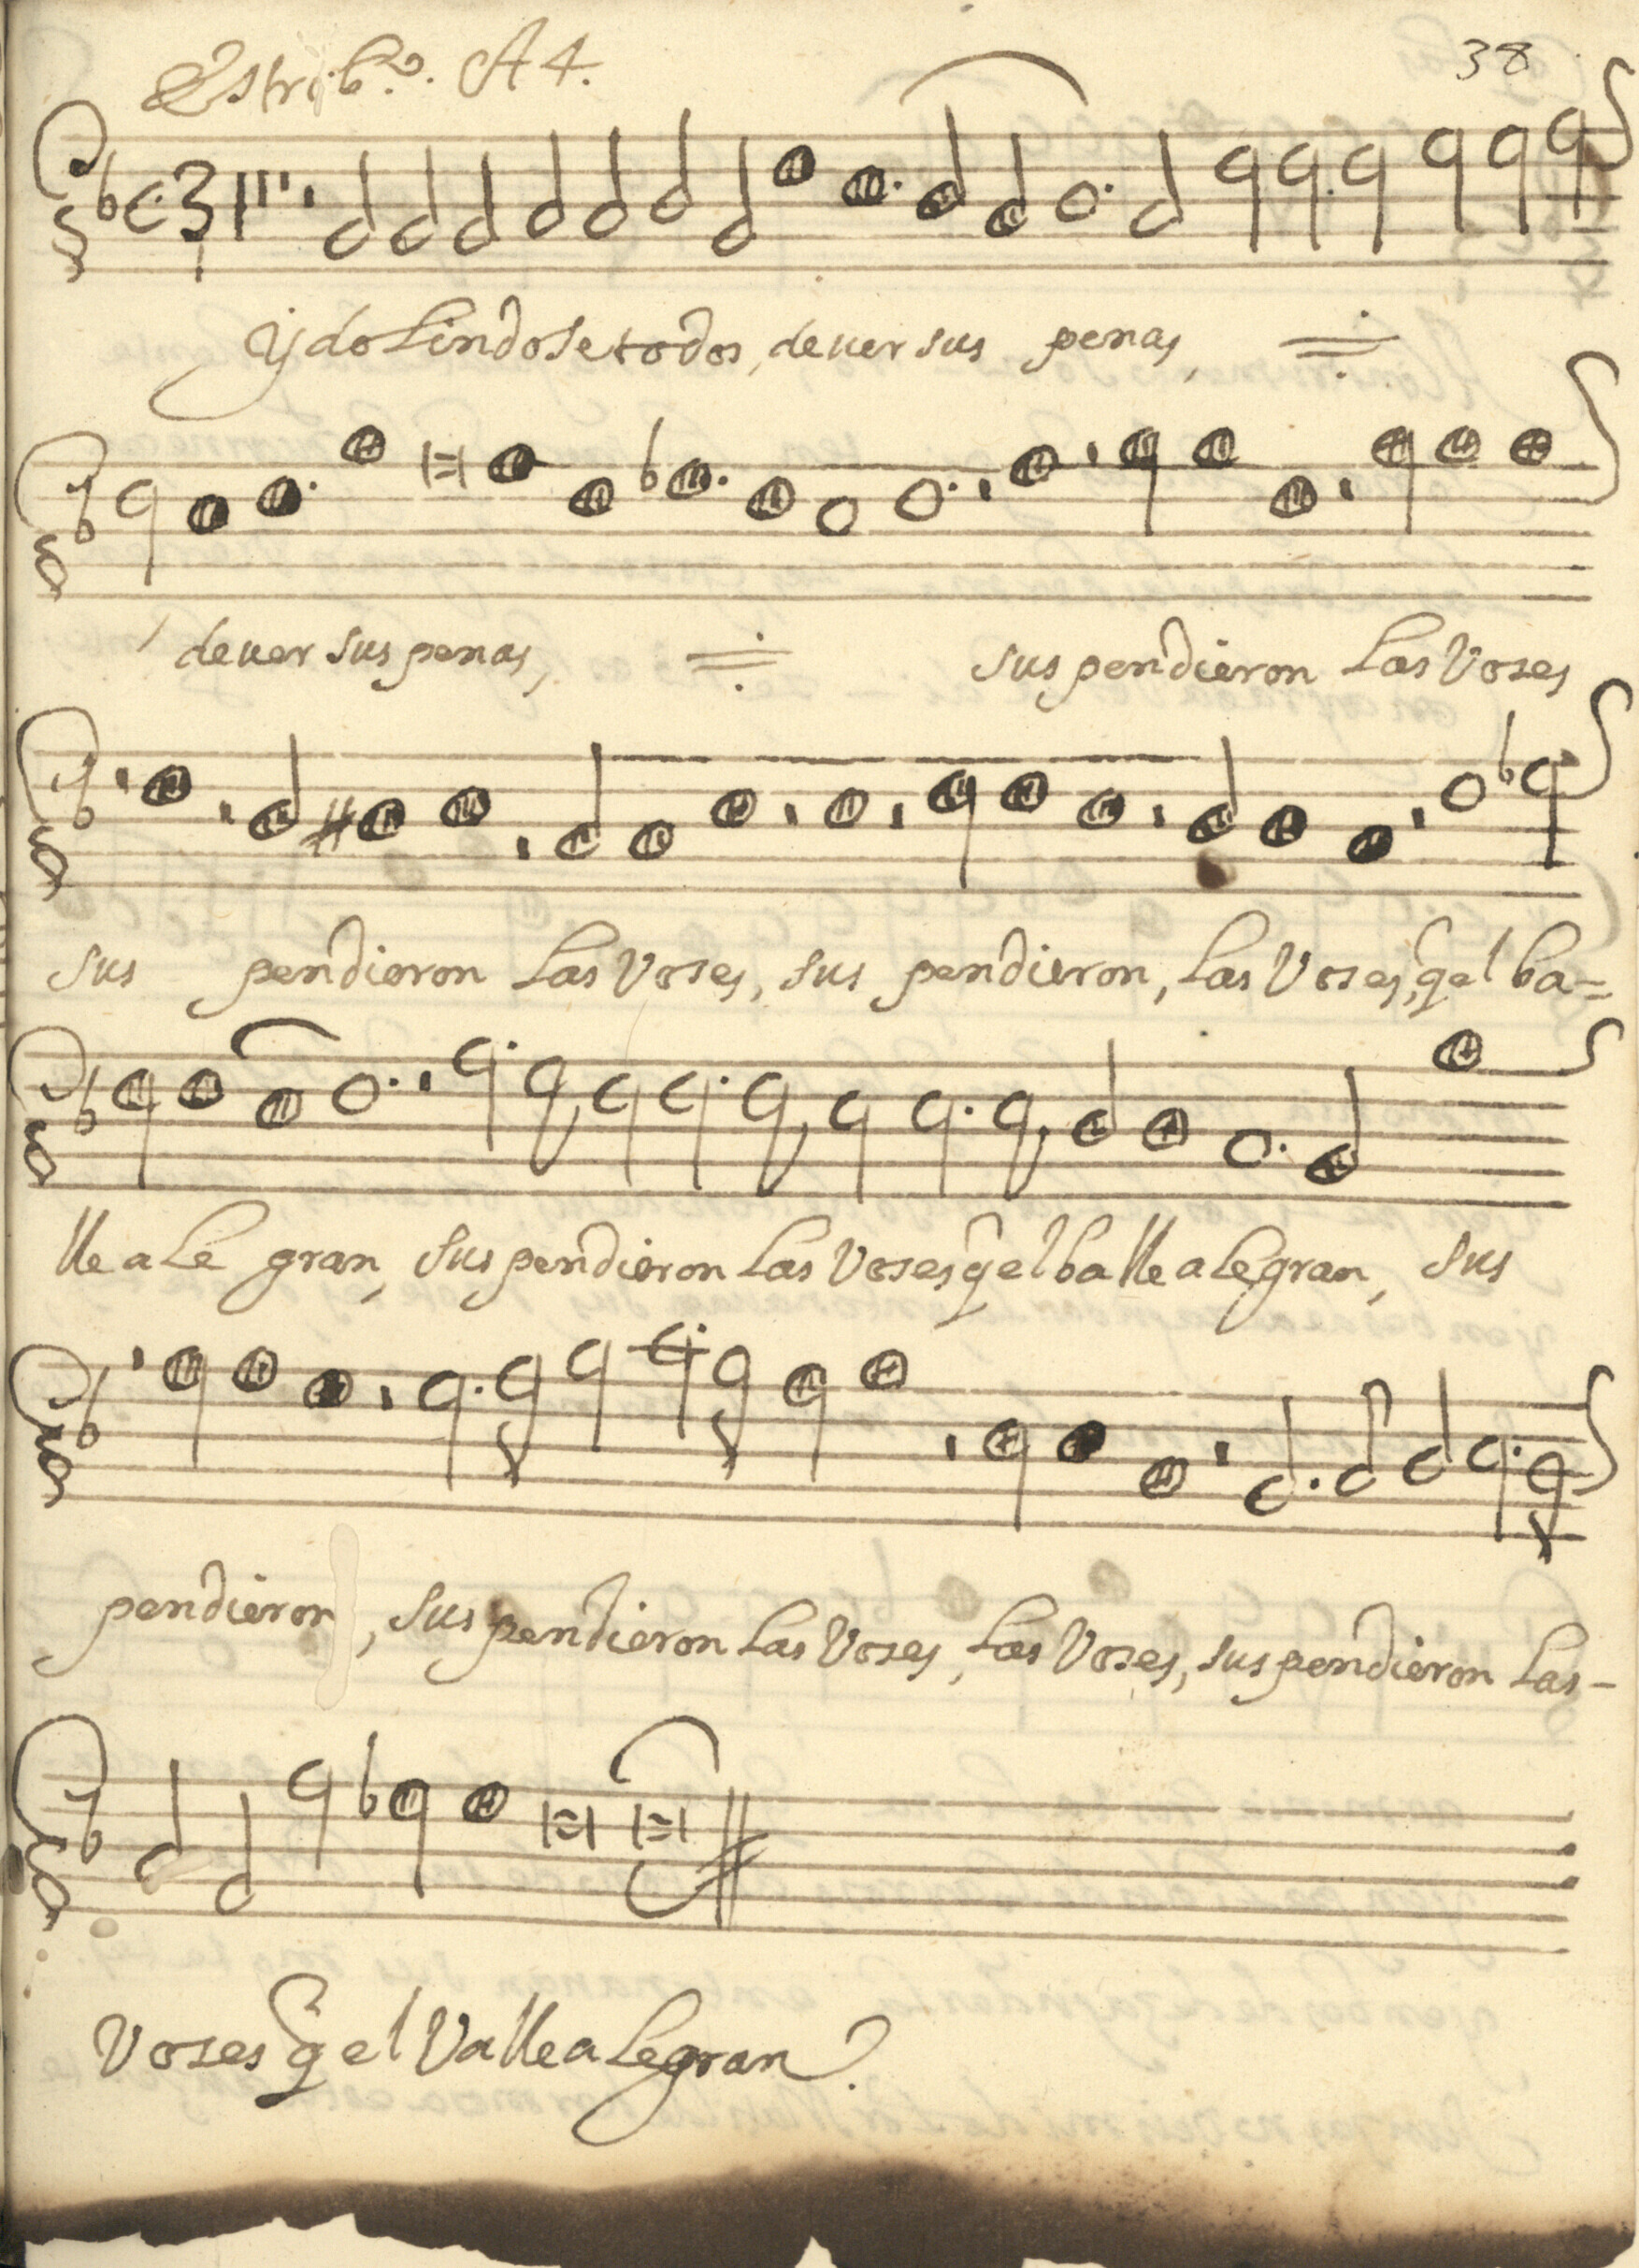 Estrib.º A 4.
38
Y doliendose todos, de uer sus penas,
de uer sus penas, suspendieron las Voses
sus pendieron las Voses, sus pendieron, las Voses, q̃ el ba=
lle ale gran, suspendieron las Voses q̃ el balle alegran, sus
pendieron, suspendieron las Voses, las Voses, suspendieron las-
Voses q̃ el Valle alegran.